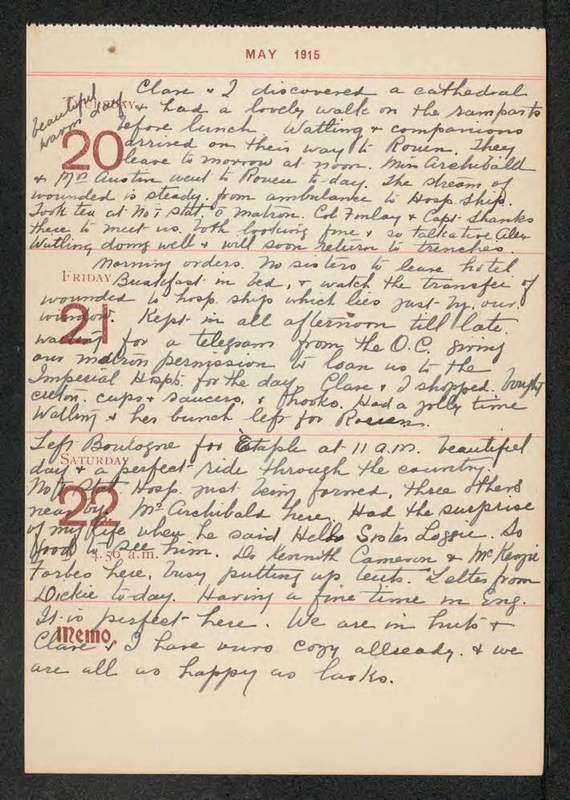 MAY 1915
Clare & I discovered a cathedral
beautiful warm day
THURSDAY
& had a lovely walk on the ramparts
before lunch. Watling & companions
20
arrived on their way to Rouen. They
leave to morrow at noon. Miss Archibald
& Mrs Austin went to Rouen to-day. The stream of
wounded is steady, from ambulance to Hosp. Ship.
Took tea at No 1 Stat. Matron. Col Finlay & Capt Shanks
there to meet us. both looking fine & so talkative. Alex
Watling doing well & will soon return to trenches
Morning orders. No sisters to leave hotel
FRIDAY
Breakfast in bed, & watch the transfer of
wounded to hosp. ship which lies just by our
21
window. Kept in all afternoon till late.
waiting for a telegram from the O.C. giving
our matron permission to loan us to the
Imperial Hospt. for the day. Clare & I shopped. bought
cups & saucers, & hooks. Had a jolly time
Watling & her bunch left for Rouen.
Left Boulogne for Etaple at 11 a.m. beautiful
day & a perfect ride through the country.
SATURDAY
No 1 Stat Hosp. just being formed, three others
22
near by. Mr Archibald here. Had the surprise
of my life when he said Hello Sister Loggie. So
good to see him. Dr Kenneth Cameron & McKenzie
4.56 a.m.
Forbes here, busy putting up tents. Letter from
Dickie to-day. Having a fine time in Eng.
It is perfect here. We are in huts &
Memo.
Clare & I have ours cozy allready. & we
are all as happy as larks.